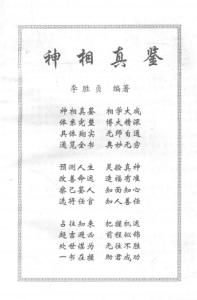 神相真鉴
李胜贞 编著
神相真鉴 相学大成
体系完整 博大精深
真翔实 无师自通
通览全书 典妙无穷
预测人生 灵验真神
改善命运 造福有准
察人鉴人 知面知心
选将任官 知人
占往知来 把握机遇
趋吉避凶 前程似锦
处世谋为
一书在 助君成功